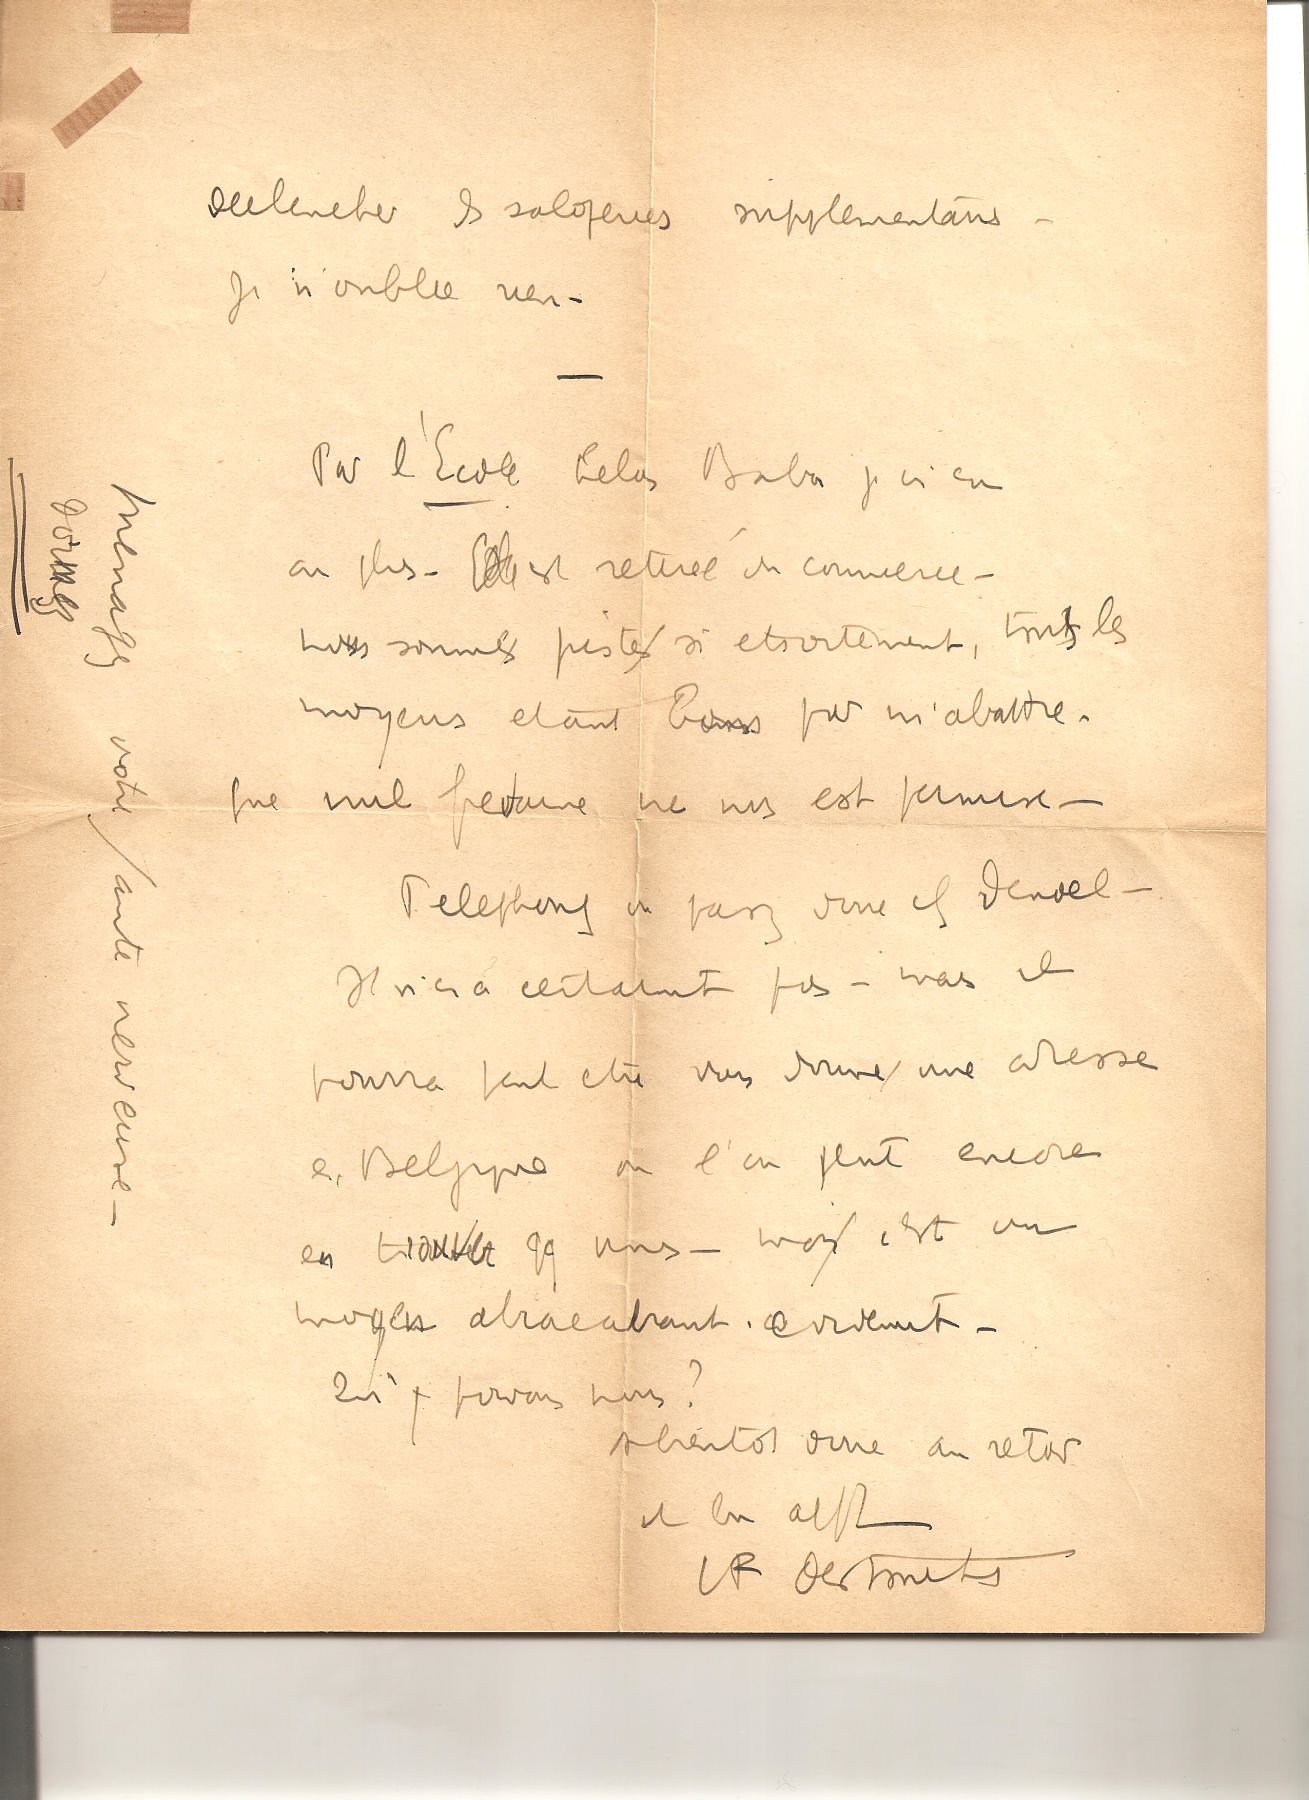 declencher ds saloperies supplementaires -
Je n'oublie rien -
—
Par l'Ecole Helas Baba je n'en
ai plus - Elle est retirée du commerce -
nous sommes pistés si etroitement, tous les
moyens etant bons pour m'abattre.
que nulle fredaine ne nous est permise —
Telephonez en passz donc chz Denoel —
Il n'en a certainement pas - mais il
pourra peut etre vous donner une adresse
en Belgique ou l'on peut encore
en trouver qq unes — mais c'est un
moyen abracadabrant evidemment -
Qu'y pouvons nous ?
A bientot donc au retour
et bien afft
LF Destouches
menagez votre santé nerveuse —
dormez